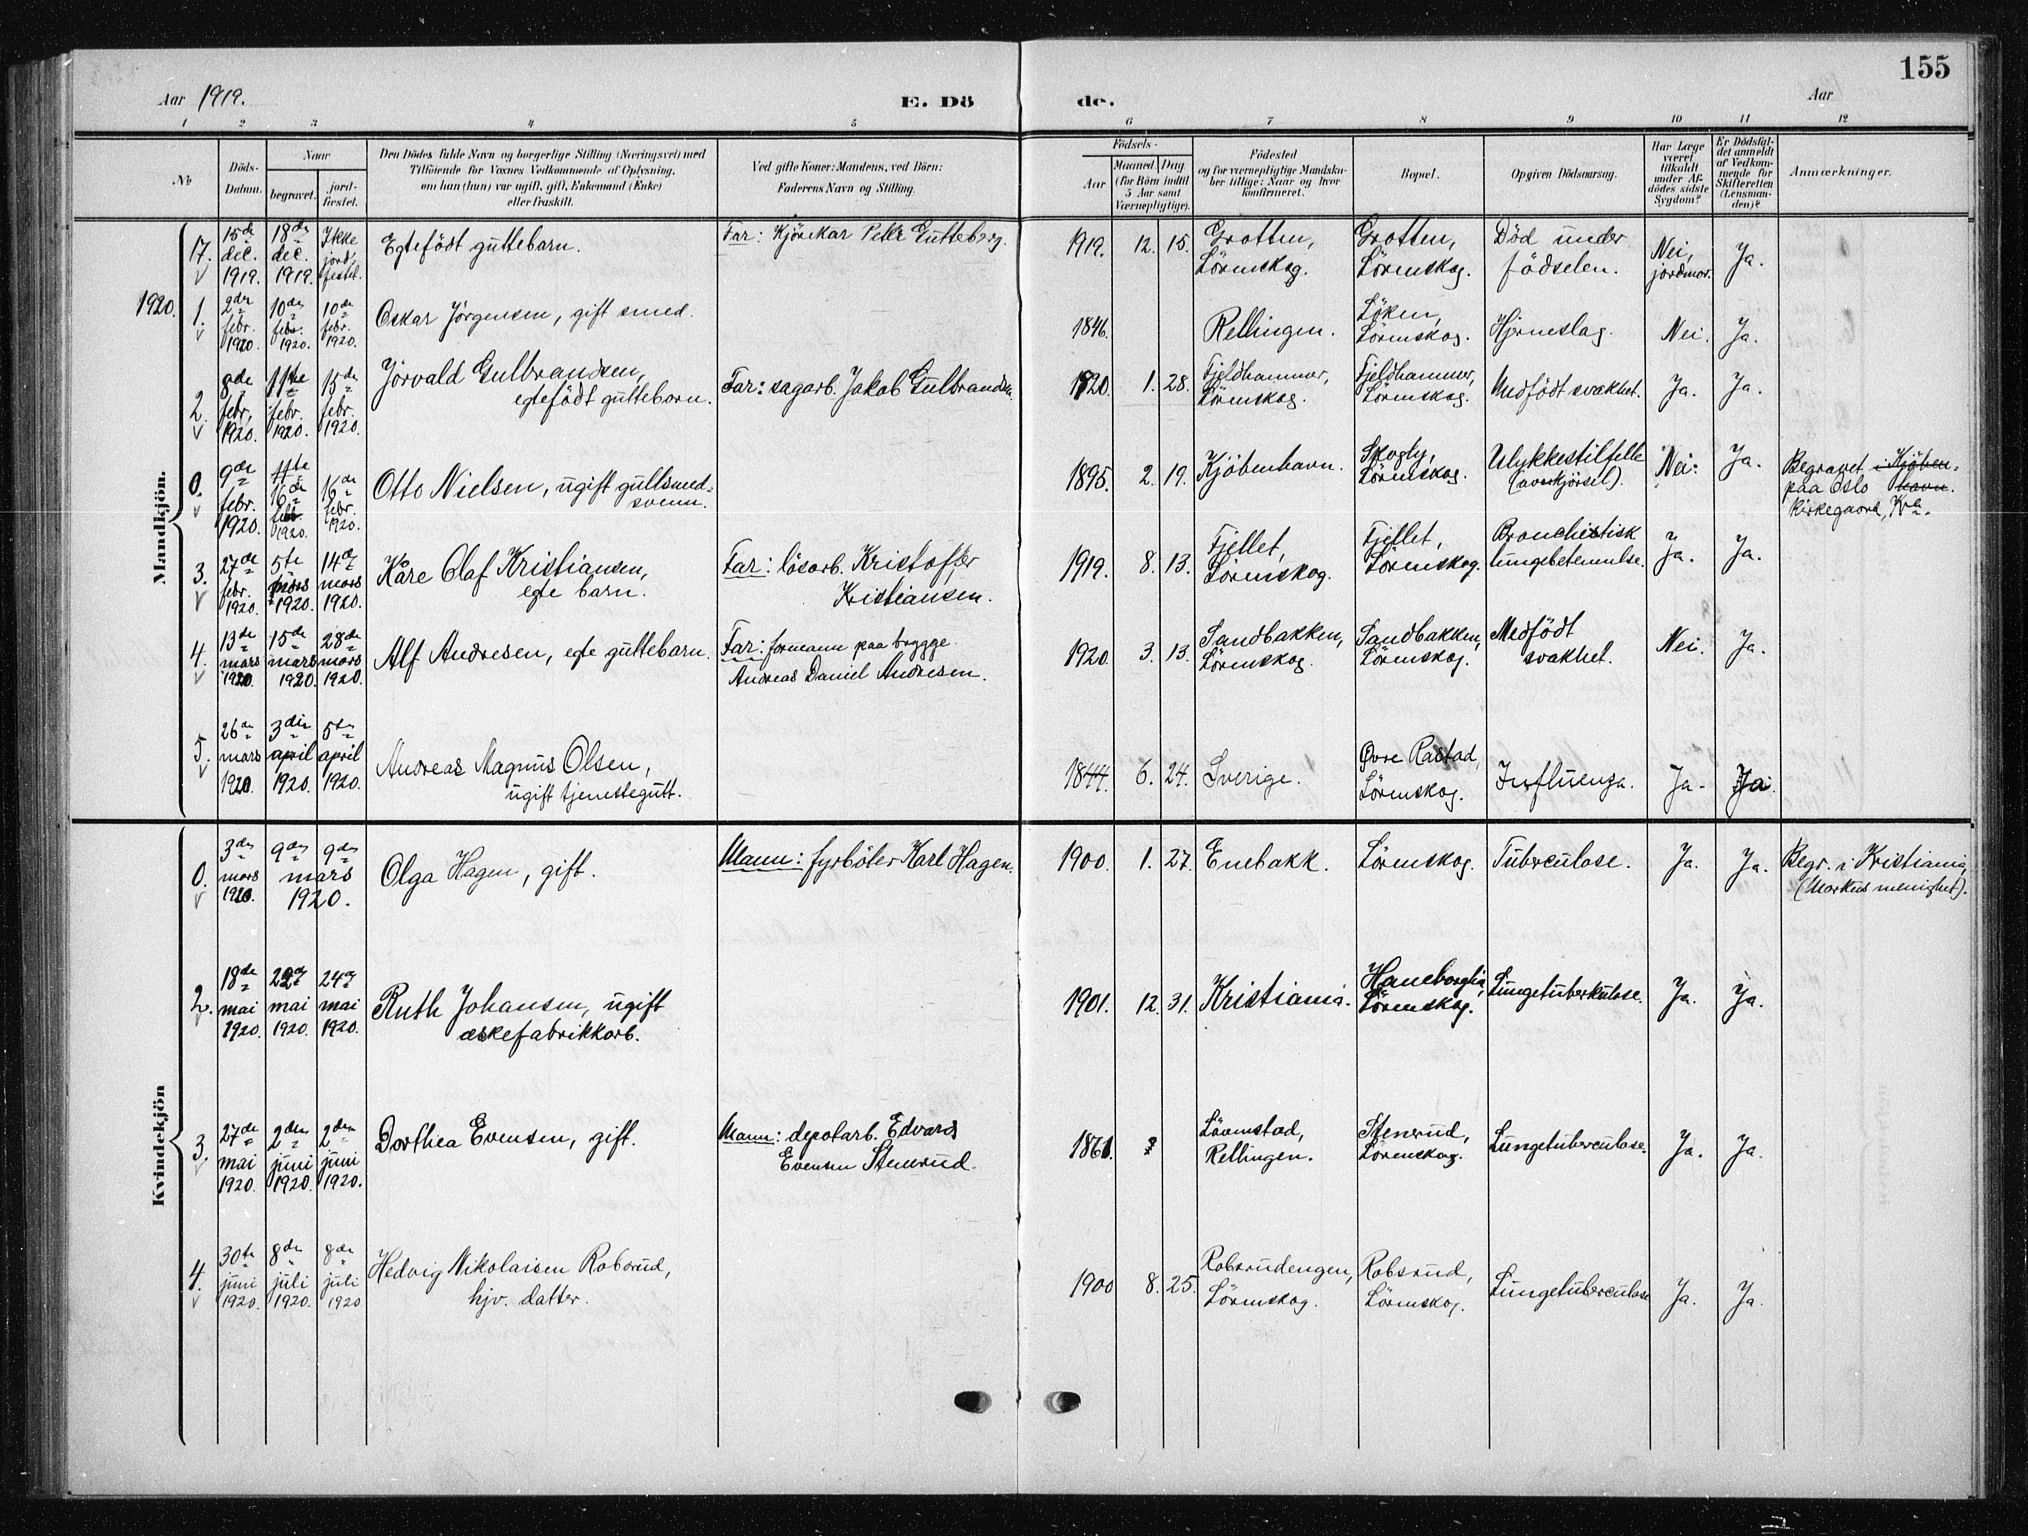 155
Aar 1919.
E. Dö
de.
Aar
1 2 3 4 5 6 7 8 9 10 11 12
No
Döds-
Datum.
Naar
begravet.
jord-
fæstet.
Den Dödes fulde Navn og borgerlige Stilling (Næringsvei) med
Tilföiende for Voxnes Vedkommende af Oplysning,
om han (hun) var ugift, gift, Enkemand (Enke)
eller fraskilt.
Ved gifte Koner: Mandens, ved Börn:
Faderens Navn og Stilling.
Födsels-
Aar
Maaned Dag
(for Börn indtil
5 Aar samt
Værnepligtige).
Födested
og for værnepligtige Mandska-
ber tillige: Naar og hvor
konfirmeret.
Bopæl.
Opgiven Dödsaarsag.
Har Læge
været
tilkaldt
under Af-
dödes sidste
Sygdom?
Er Dödsfal-
det anmeldt
af Vedkom-
mende for
Skifteretten
(Lensman-
den)?
Anmærkninger.
Mandkjön.
17. 15de dec. 1919. 18de dec. 1919. Ikke jord fæstet. Egtefödt guttebarn. Far: Kjörekar Petter Gutteberg. 1919. 12. 15. Grotten, Lörenskog. Grotten, Lörenskog. Död under födselen. Nei, jordmor. Ja.
1920.
1. 2den febr. 1920. 10de febr. 1920. 10de febr. 1920. Oskar Jörgensen, gift smed. 1846. Rellingen. Löken, Lörenskog. Hjerneslag. Nei. Ja.
2. 8de febr. 1920. 11te febr. 1920. 15de febr. 1920. Jörvald Gulbrandsen, egtefödt guttebarn. Far: sagarb. Jakob Gulbrandsen 1920. 1. 28. Fjeldhammer, Lörenskog. Fjeldhammer, Lörenskog. Medfödt svakhet. Ja. Ja.
0. 9de febr. 1920. 16de febr. 1920. 16de febr. 1920. Otto Nielsen, ugift gullsmed- svenn. 1895. 2. 19. Kjöbenhavn. Skogly, Lörenskog. Ulykkestilfelle (overkjörsel). Nei. Ja. Begravet i Kjöben- havn. paa Oslo kirkegaard, Kra.
3. 27de febr. 1920. 5te mars 1920. 14de mars 1920. Kåre Olaf Kristiansen, egte barn. Far: lösarb. Kristoffer Kristiansen. 1919. 8. 13. Fjellet, Lörenskog. Fjellet, Lörenskog. Bronchistisk lungebetennelse. Ja. Ja.
4. 13de mars 1920. 15de mars 1920. 28de mars 1920. Alf Andresen, egte guttebarn. Far: formann paa brygge Andreas Daniel Andresen. 1920. 3. 13. Sandbakken, Lörenskog. Sandbakken, Lörenskog. Medfödt svakhet. Nei. Ja.
5. 26de mars 1920. 3die april 1920. 5te april 1920. Andreas Magnus Olsen, ugift tjenestegutt. 1844. 6. 24. Sverige. Øvre Råstad, Lörenskog. Influensa. Ja. Ja.
Kvindekjön
0. 3de mars 1920. 9de 9de mars 1920. Olga Hagen, gift. Mann: fyrböter Karl Hagen. 1900. 1. 27. Enebakk. Lörenskog. Tuberculose. Ja. Ja. Begr. i Kristiania, (Markus menighet).
2. 18de mai 1920. mai 1920. 24de mai 1920. Ruth Johansen, ugift æskefabrikkarb. 1901. 12. 31. Kristiania. Haneborglia, Lörenskog. Lungetuberkulose. Ja. Ja.
3. 27de mai 1920. 2den juni 1920. 2den juni 1920. Dorthea Evensen, gift. Mann: depotarb. Edvard Evensen Stenerud. 1861. Rellingen. Stenerud, Lörenskog. Lungetuberculose. Ja. Ja.
4. 30te juni 1920. 8de juli 1920. 8de juli 1920 Hedvig Nikolaisen Robsrud, hjv. datter. 1900 8. 25. Robsrudengen, Lörenskog. Robsrud, Lörenskog. Lungetuberculose Ja. Ja.